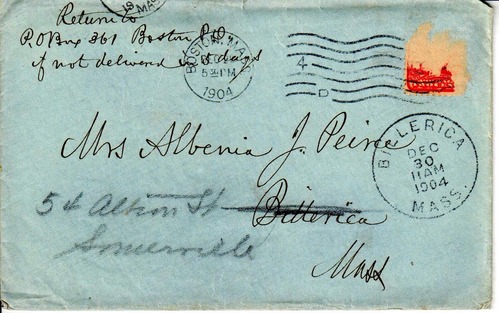 MASS.
Return to
P.O Box 361 Boston P.O.
if not delivered in 5 days
BOSTON, MASS.
5 30 PM
1904
4
D
Mrs Albenia J. Peirce
54 Albion St Billerica
Somerville
Mass
BILLERICA
DEC
30
11AM
1904
MASS.